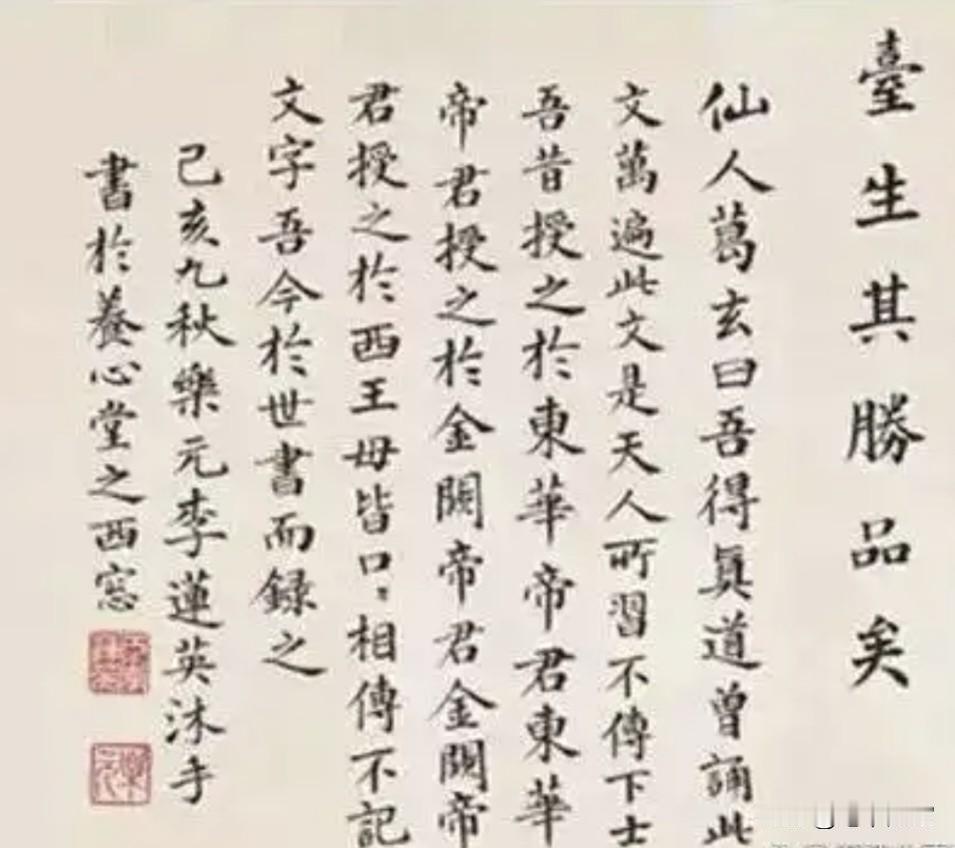 臺生其勝品矣
仙人葛玄曰吾得眞道曾誦此
文萬遍此文是天人所習不傳下士
吾昔授之於東華帝君東華
帝君授之於金闕帝君金闕帝
君授之於西王母皆口〻相傳不記
文字吾今於世書而録之
己亥九秋樂元李蓮英沐手
書於養心堂之西窓